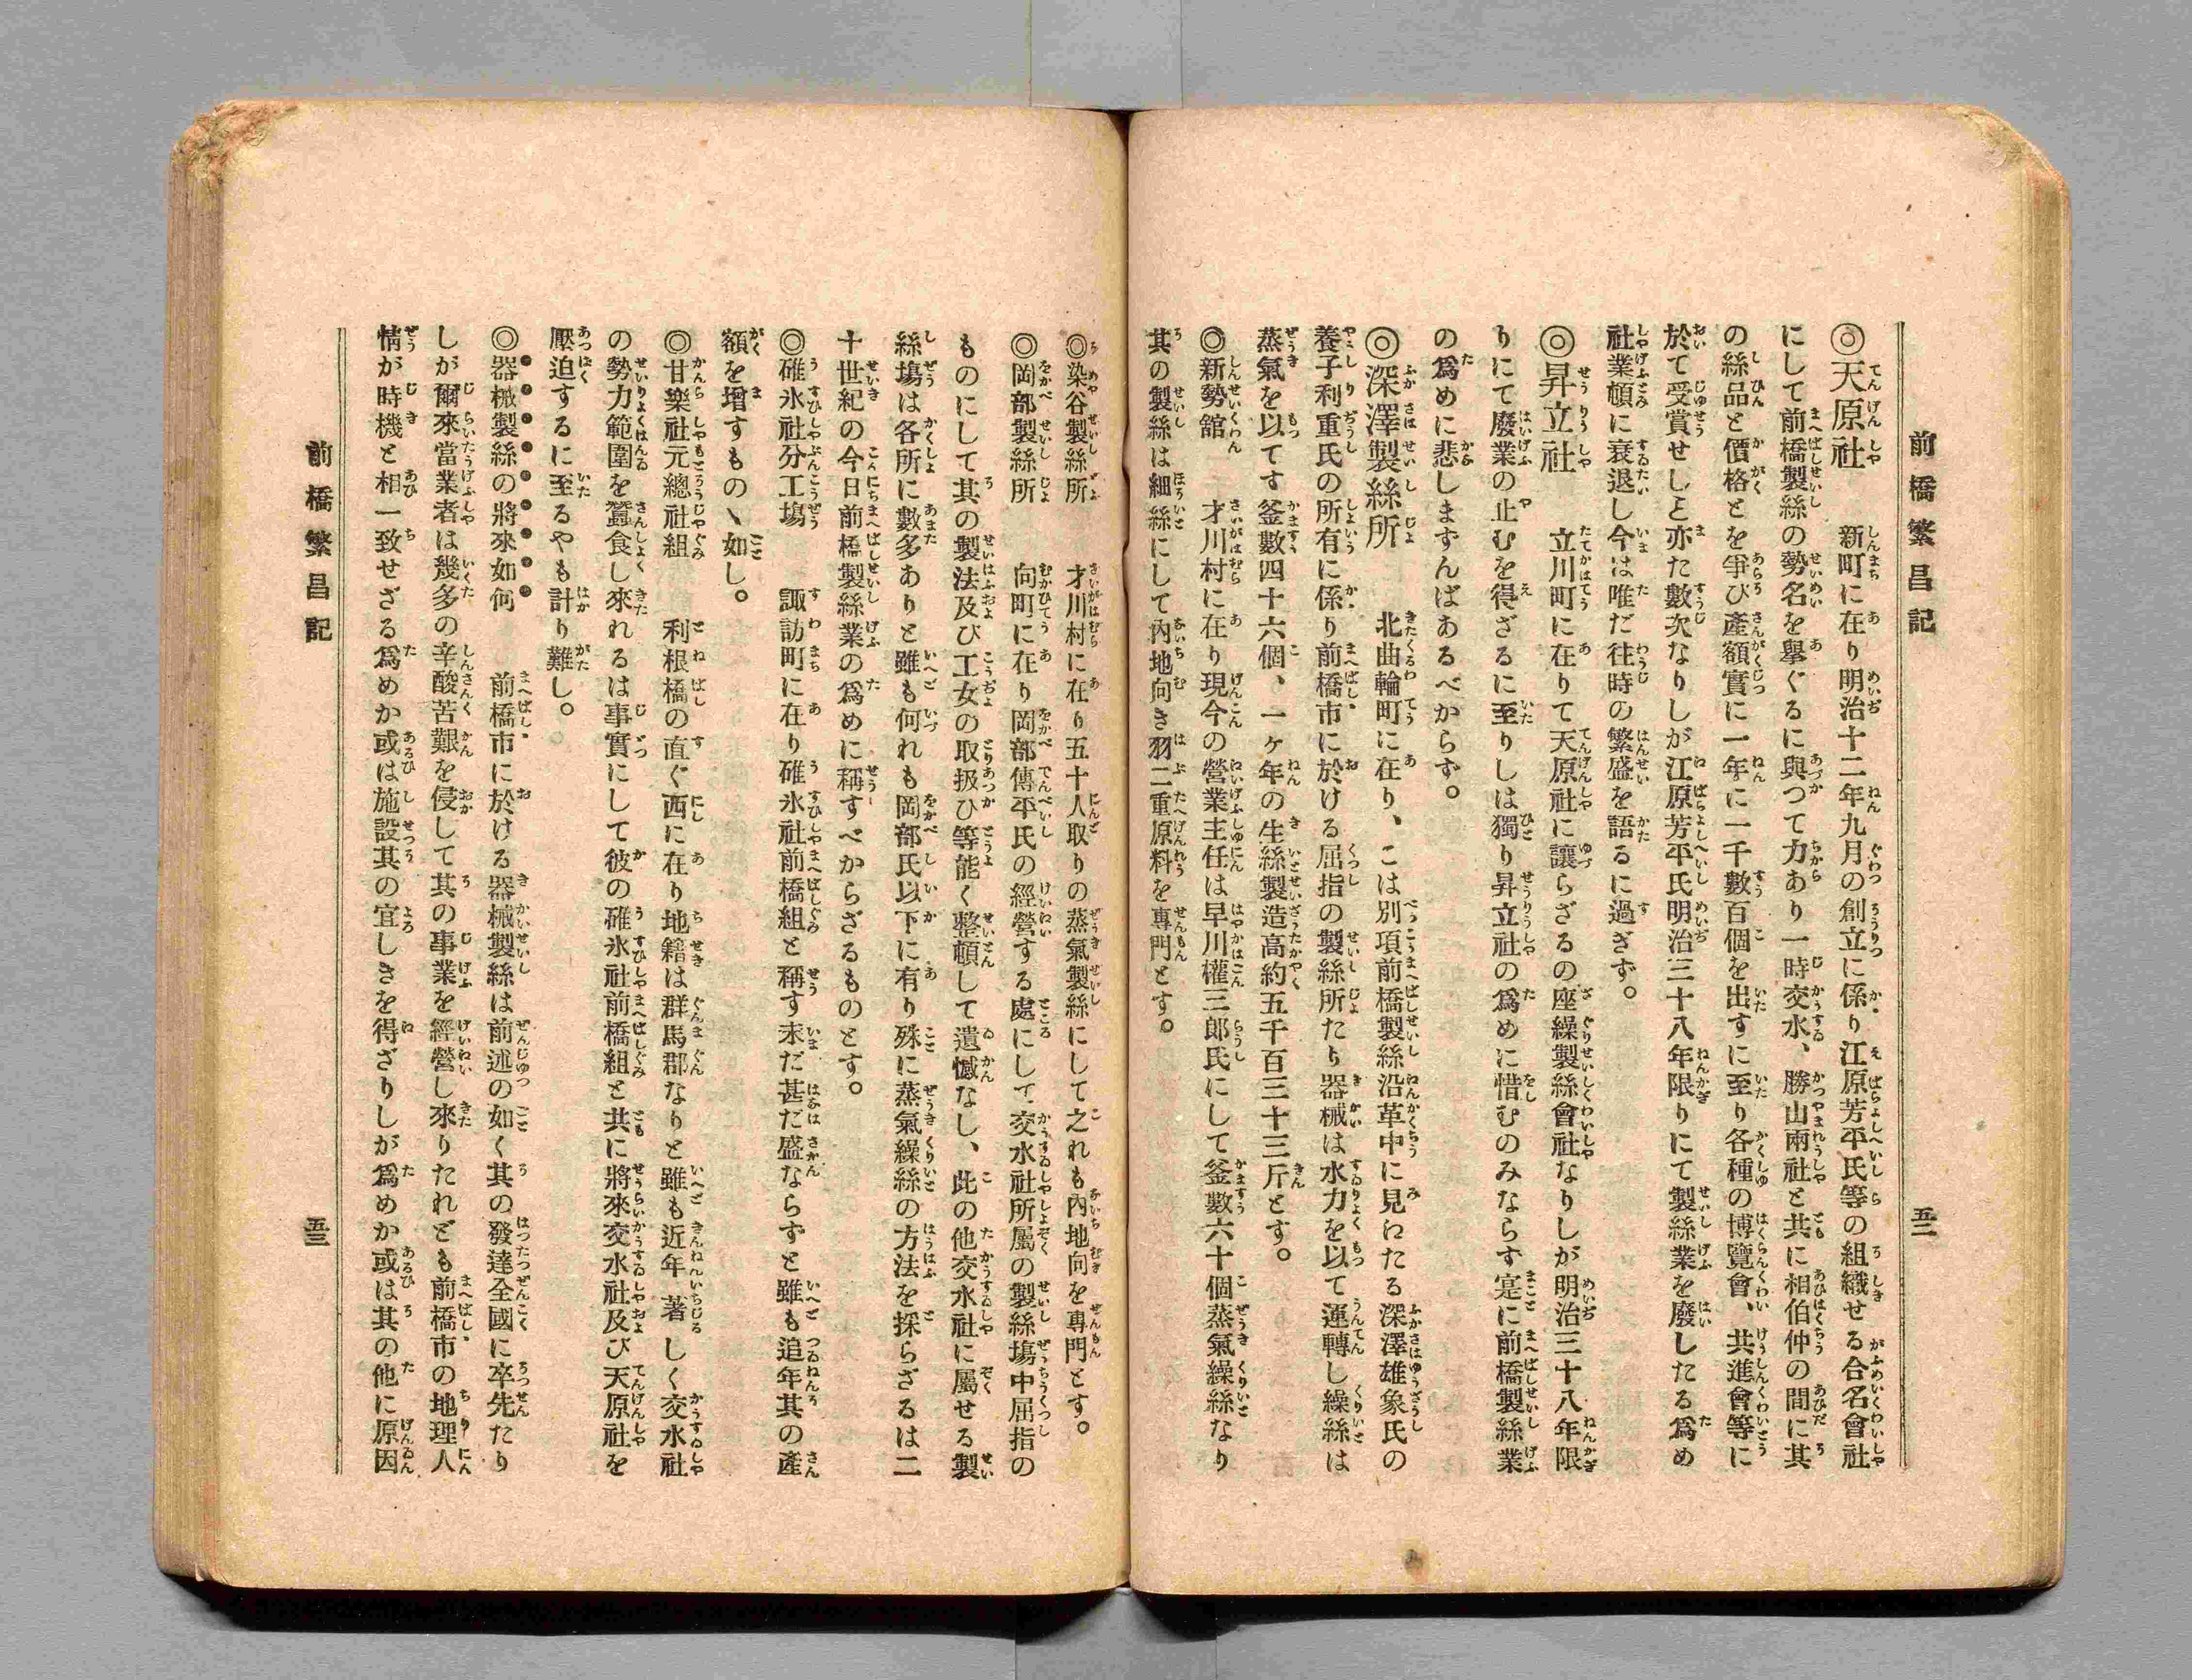 前橋繁昌記
五二
◎天原社　新町に在り明治十二年九月の創立に係り江原芳平氏等の組織せる合名會社
にして前橋製絲の勢名を擧ぐるに與つて力あり一時交水、勝山兩社と共に相伯仲の間に其
の絲品と價格とを爭ひ產額實に一年に一千數百個を出すに至り各種の博覽會、共進會等に
於て受賞せしと亦た數次なりしが江原芳平氏明治三十八年限りにて製絲業を廢したる爲め
社業頓に衰退し今は唯だ往時の繁盛を語るに過ぎず。
◎昇立社　立川町に在りて天原社に讓らざるの座繰製絲會社なりしが明治三十八年限
りにて廢業の止むを得ざるに至りしは獨り昇立社の爲めに惜むのみならす寔に前橋製絲業
の爲めに悲しますんばあるべからす。
◎深澤製絲所　北曲輪町に在り、こは別項前橋製絲沿革中に見ゆたる深澤雄象氏の
養子利重氏の所有に係り前橋市に於ける屈指の製絲所たり器械は水力を以て運轉し繰絲は
蒸氣を以てす釜數四十六個、一ヶ年の生絲製造高約五千百三十三斤とす。
◎新勢館　才川村に在り現今の營業主任は早川權三郎氏にして釜數六十個蒸氣繰絲なり
其の製絲は細絲にして內地向き羽二重原料を專門とす。
◎染谷製絲所　才川村に在り五十人取りの蒸氣製絲にして之れも內地向を專門とす。
◎岡部製絲所　向町に在り岡部傳平氏の經營する處にして交水社所屬の製絲塲中屈指の
ものにして其の製法及び工女の取扱ひ等能く整頓して遺憾なし、此の他交水社に屬せる製
絲塲は各所に數多ありと雖も何れも岡部氏以下に有り殊に蒸氣繰絲の方法を採らざるは二
十世紀の今日前橋製絲業の爲めに稱すべからざるものとす。
◎碓氷社分工塲　諏訪町に在り碓氷社前橋組と稱す未だ甚だ盛ならずと雖も追年其の產
額を增すものヽ如し。
◎甘樂社元總社組　利根橋の直ぐ西に在り地籍は群馬郡なりと雖も近年著しく交水社
の勢力範圍を蠶食し來れるは事實にして彼の碓氷社前橋組と共に將來交水社及び天原社を
壓迫するに至るやも計り難し。
◎器械製絲の將來如何　前橋市に於ける器械製絲は前述の如く其の發達全國に卒先たり
しが爾來當業者は幾多の辛酸苦艱を侵して其の事業を經營し來りたれども前橋市の地理人
情が時機と相一致せざる爲めか或は施設其の宜しきを得ざりしが爲めか或は其の他に原因
前橋繁昌記
五三